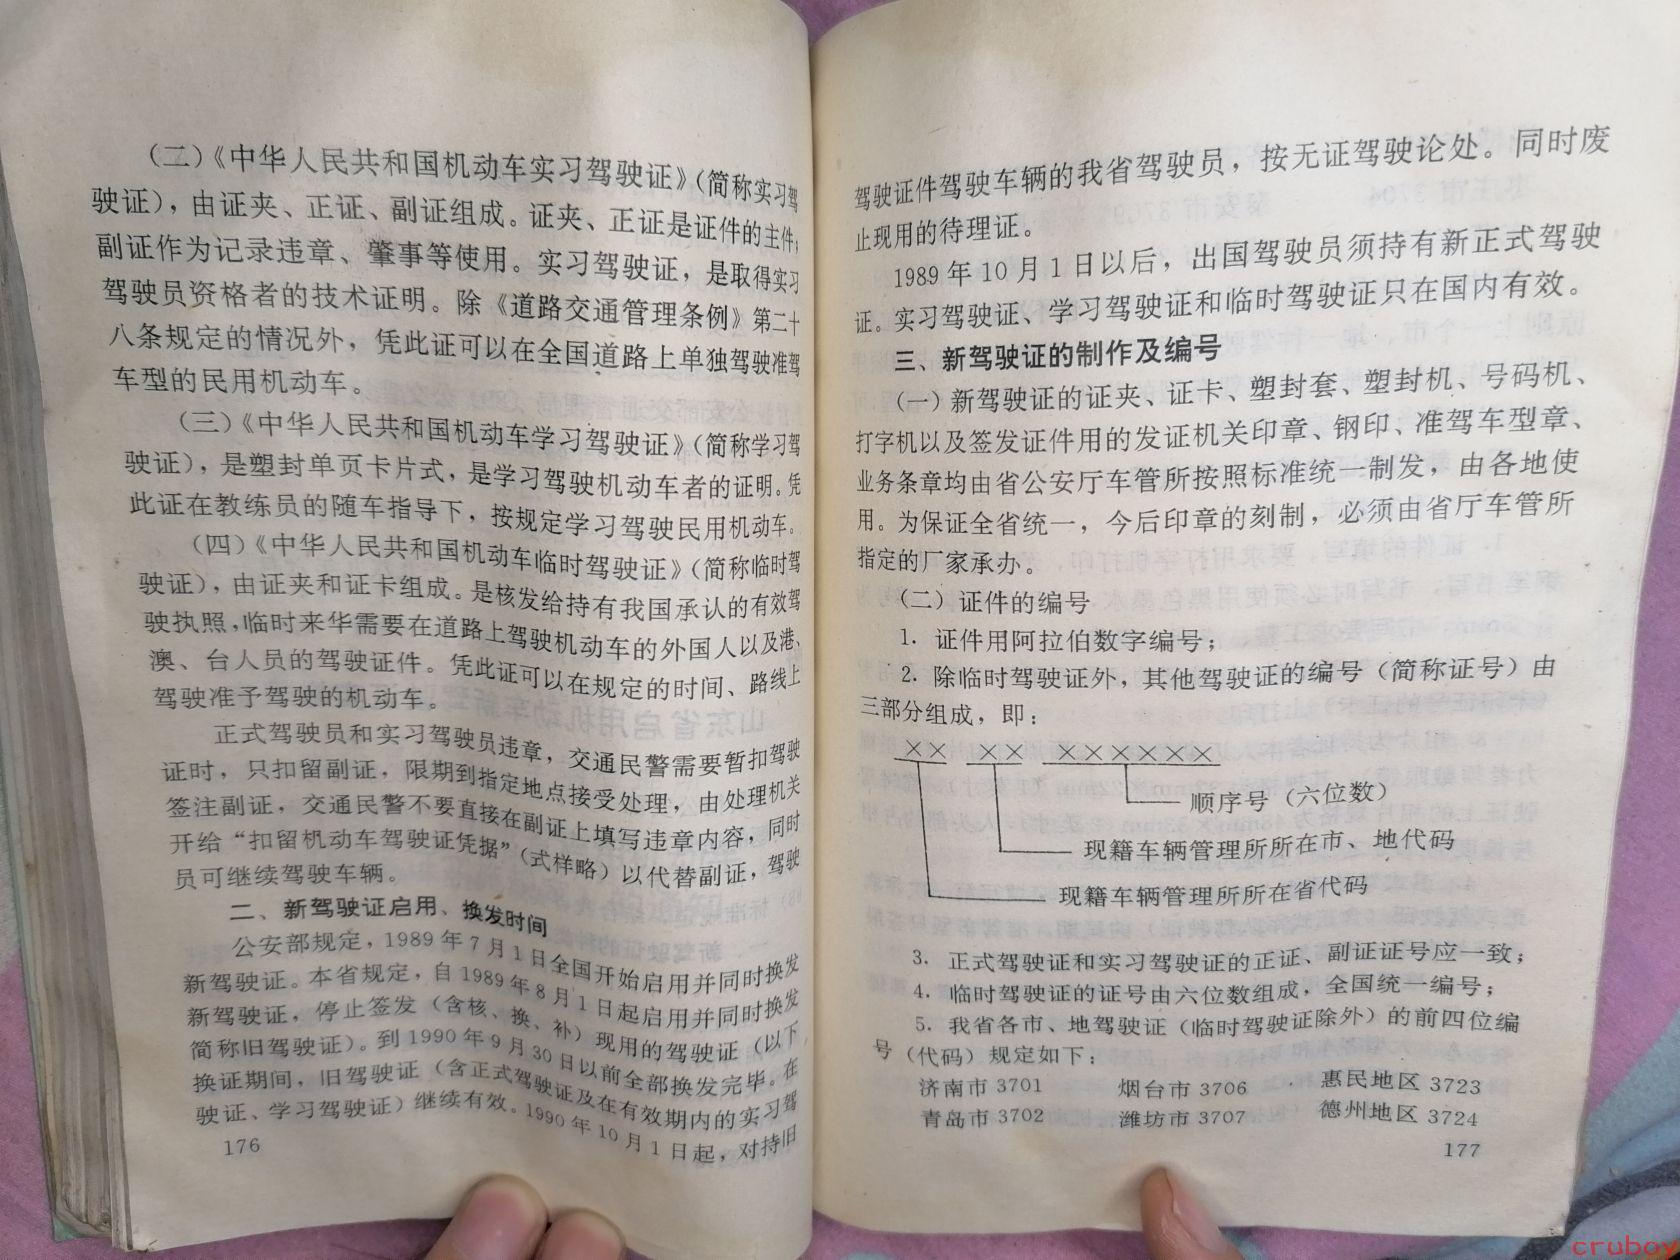 (二)《中华人民共和国机动车实习驾驶证》(简称实习驾
驶证)，由证夹、正证、副证组成。证夹、正证是证件的主件；
副证作为记录违章、肇事等使用。实习驾驶证，是取得实习
驾驶员资格者的技术证明。除《道路交通管理条例》第二十
八条规定的情况外，凭此证可以在全国道路上单独驾驶准驾
车型的民用机动车。
(三)《中华人民共和国机动车学习驾驶证》(简称学习驾
驶证)，是塑封单页卡片式，是学习驾驶机动车者的证明。凭
此证在教练员的随车指导下，按规定学习驾驶民用机动车。
(四)《中华人民共和国机动车临时驾驶证》(简称临时驾
驶证)，由证夹和证卡组成。是核发给持有我国承认的有效驾
驶执照，临时来华需要在道路上驾驶机动车的外国人以及港、
澳、台人员的驾驶证件。凭此证可以在规定的时间、路线上
驾驶准予驾驶的机动车。
正式驾驶员和实习驾驶员违章，交通民警需要暂扣驾驶
证时，只扣留副证，限期到指定地点接受处理，由处理机关
签注副证，交通民警不要直接在副证上填写违章内容，同时
开给“扣留机动车驾驶证凭据”(式样略)以代替副证，驾驶
员可继续驾驶车辆。
二、新驾驶证启用、换发时间
公安部规定，1989年7月1日全国开始启用并同时换发
新驾驶证。本省规定，自1989年8月1日起启用并同时换发
新驾驶证，停止签发(含核、换、补)现用的驾驶证(以下
简称旧驾驶证)。到1990年9月30日以前全部换发完毕。在
换证期间，旧驾驶证(含正式驾驶证及在有效期内的实习驾
驶证、学习驾驶证)继续有效。1990年10月1日起，对持旧
176
驾驶证件驾驶车辆的我省驾驶员，按无证驾驶论处。同时废
止现用的待理证。
1989年10月1日以后，出国驾驶员须持有新正式驾驶
证。实习驾驶证、学习驾驶证和临时驾驶证只在国内有效。
三、新驾驶证的制作及编号
(一)新驾驶证的证夹、证卡、塑封套、塑封机、号码机、
打字机以及签发证件用的发证机关印章、钢印、准驾车型章、
业务条章均由省公安厅车管所按照标准统一制发，由各地使
用。为保证全省统一，今后印章的刻制，必须由省厅车管所
指定的厂家承办。
(二)证件的编号
1. 证件用阿拉伯数字编号；
2. 除临时驾驶证外，其他驾驶证的编号(简称证号)由
三部分组成，即：
×× ×× ××××××
顺序号(六位数)
现籍车辆管理所所在市、地代码
现籍车辆管理所所在省代码
3. 正式驾驶证和实习驾驶证的正证、副证证号应一致；
4. 临时驾驶证的证号由六位数组成，全国统一编号；
5. 我省各市、地驾驶证(临时驾驶证除外)的前四位编
号(代码)规定如下：
济南市3701 烟台市3706 惠民地区3723
青岛市3702 潍坊市3707 德州地区3724
177
cruboy